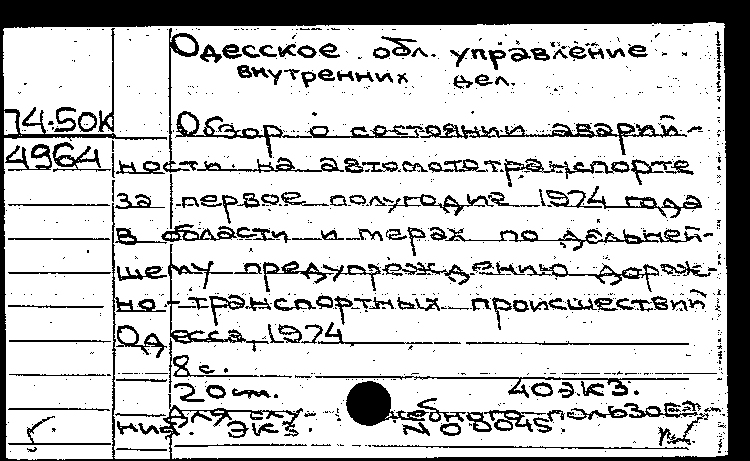 Одесское обл. управление
внутренних дел.
74-50К Обзор о состоянии аварий-
4964 ности на автомототранспорте
за первое полугодие 1974 года
в области и мерах по дальней-
шему предупреждению дорож-
но-транспортных происшествий
Одесса, 1974
8 с.
20 см. 40 экз.
Для слу- жебного пользова-
ния. Экз. N 00045.